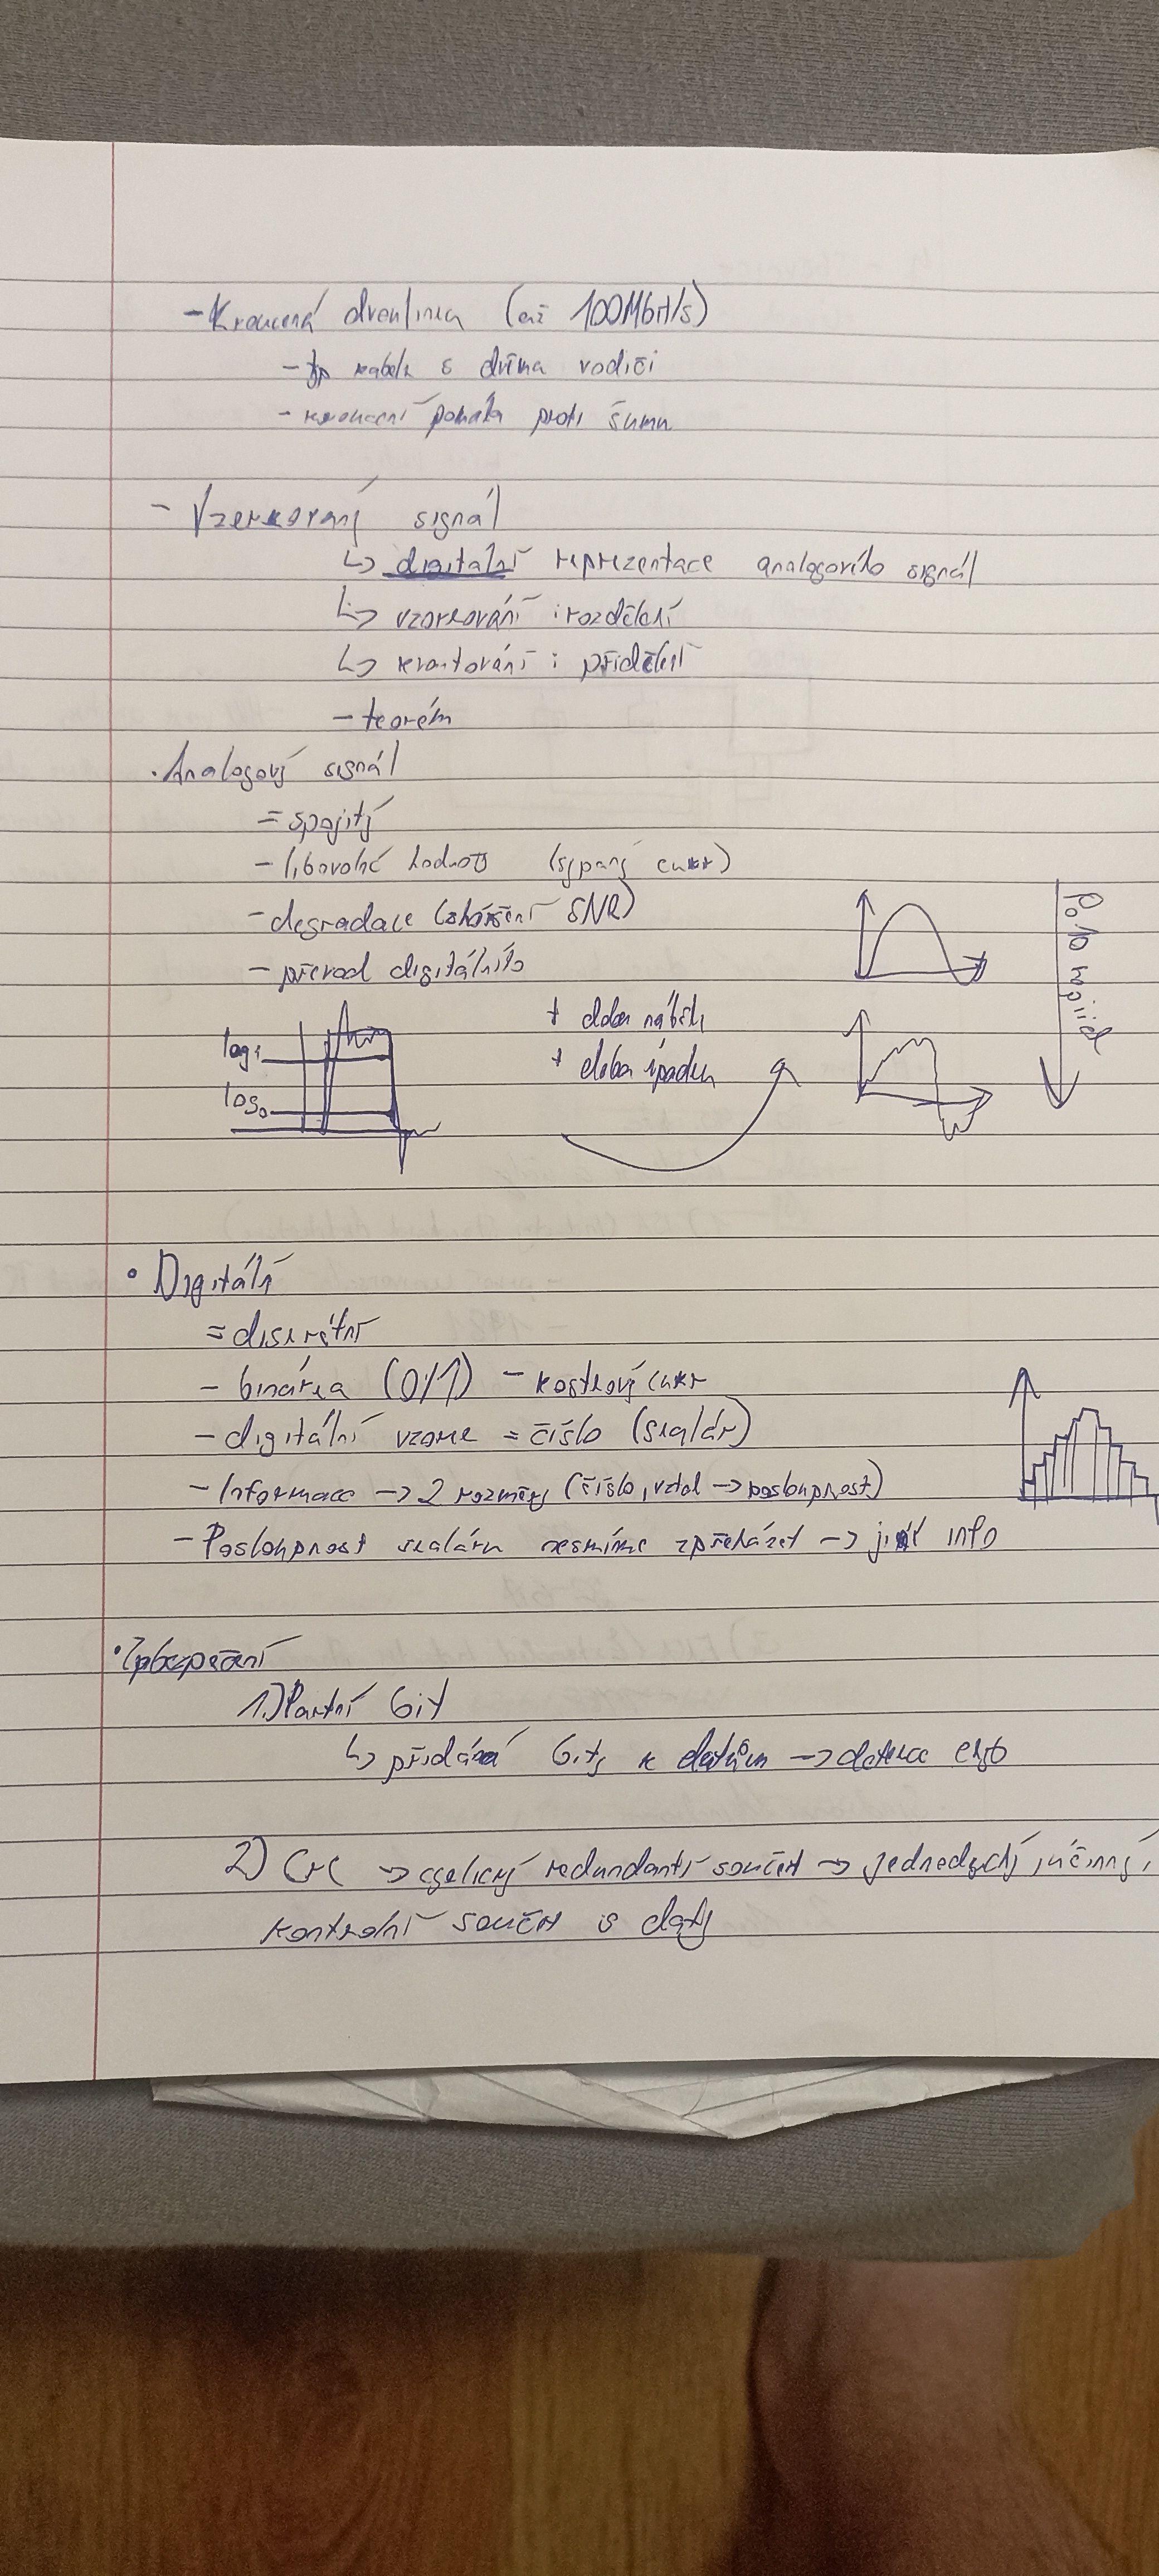 - Kroucená dvoulinka (až 100Mbit/s)
- typ kabelu s dvěma vodiči
- kroucení pomáhá proti šumu
- Vzorkovaný signál
↳ digitální reprezentace analogového signál
↳ vzorkování : rozdělení
↳ kvantování : přidělení
- teorém
· Analogový signál
= spojitý
- libovolné hodnoty (sypaný cukr)
- degradace (zhoršení SNR)
- převod digitálního
+ doba náběhu
+ doba úpadku
log1
log0
Po10 opičid
• Digitální
= diskrétní
- binárka (0/1) - kostkový cukr
- digitální vzorek = číslo (skalár)
- Informace -> 2 rozměry (číslo, vztah -> posloupnost)
- Posloupnost skalárů nesmíme zpřeházet -> jiná info
· Zabezpečení
1.) Paritní bit
↳ přidává bity k datům -> detekce chyb
2) CRC -> cyklický redundantní součet -> jednoduchý, účinný,
kontrolní součet s daty